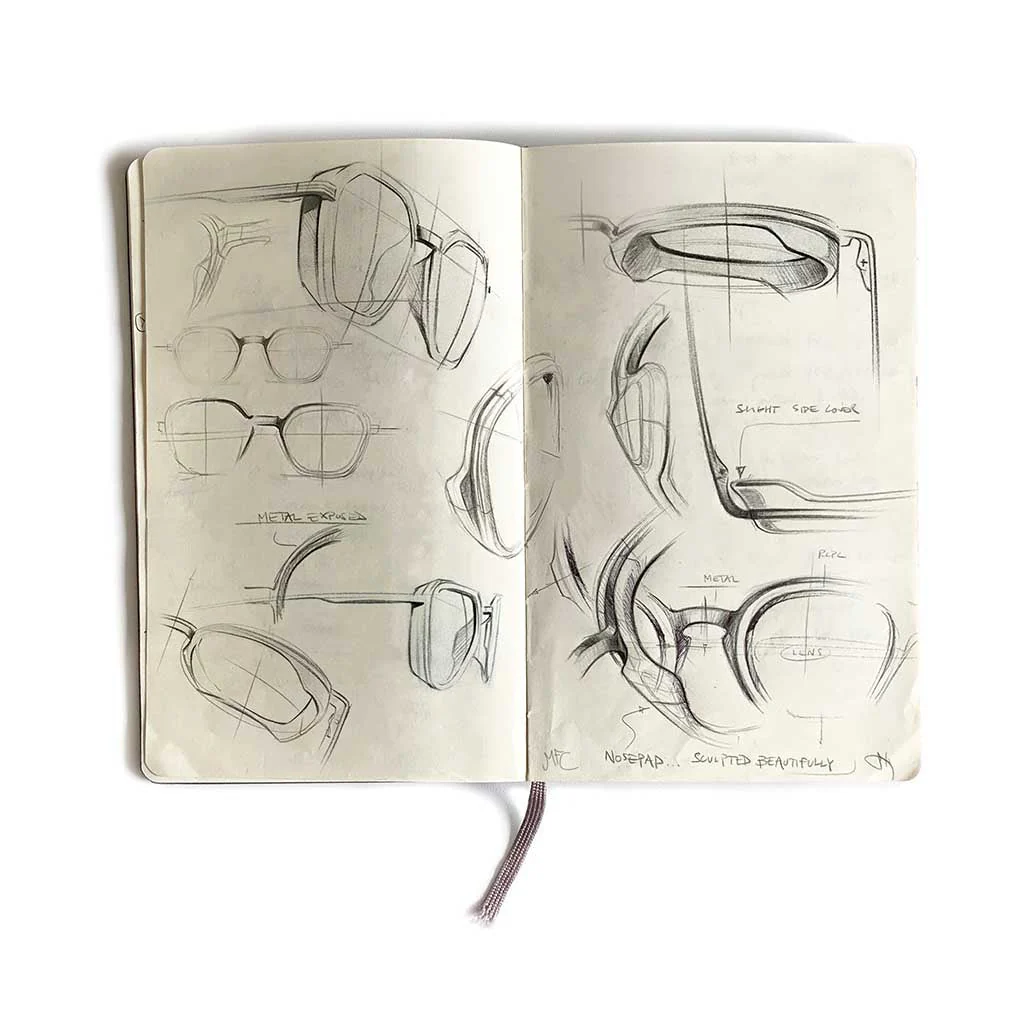 METAL EXPOSED
SLIGHT SIDE COVER
METAL
LENS
NOSEPAD... SCULPTED BEAUTIFULLY